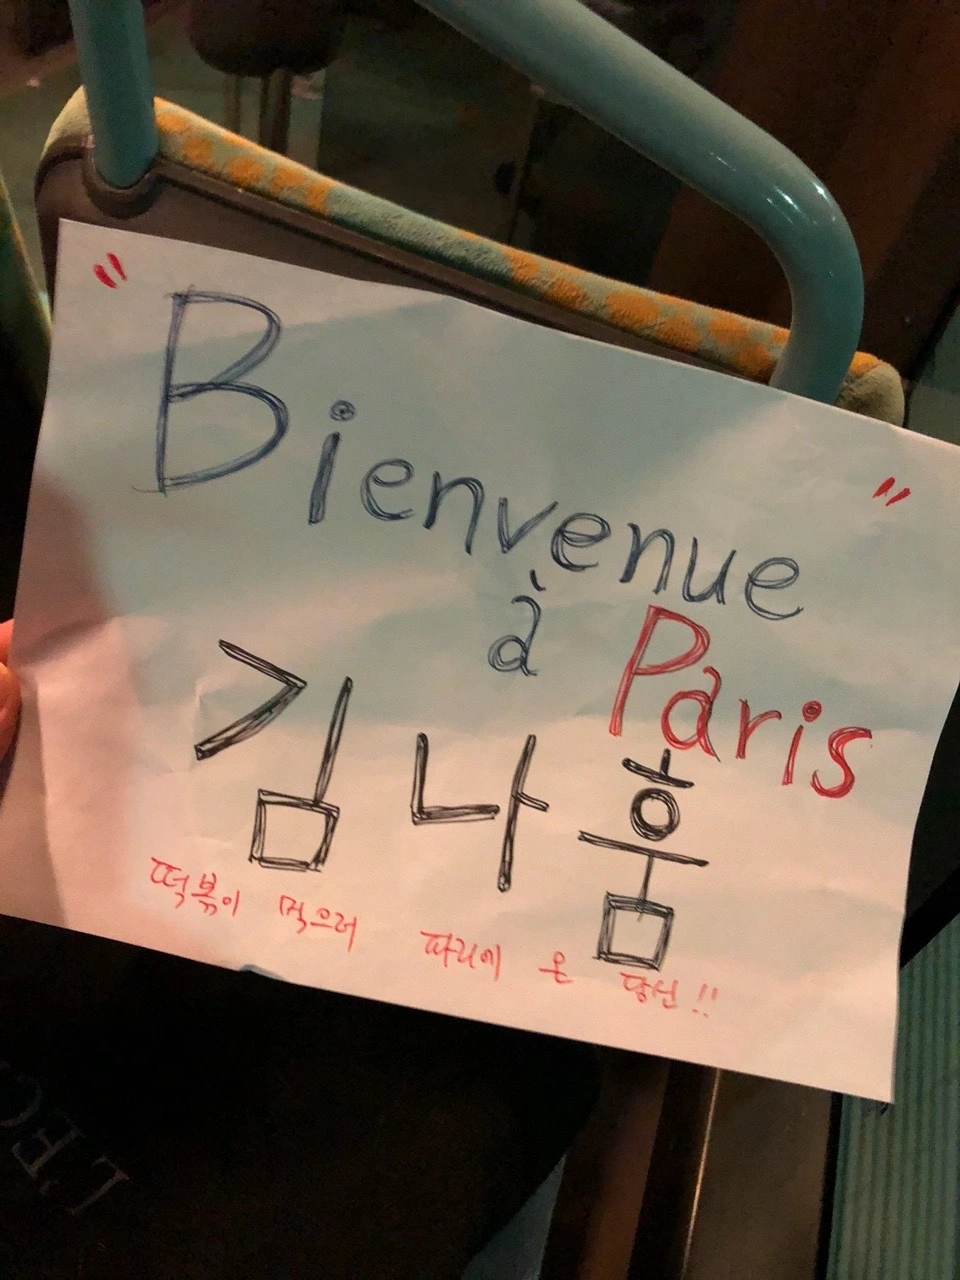 " Bienvenue "
à Paris
김나훔
떡볶이 먹으러 파리에 온 당신!!